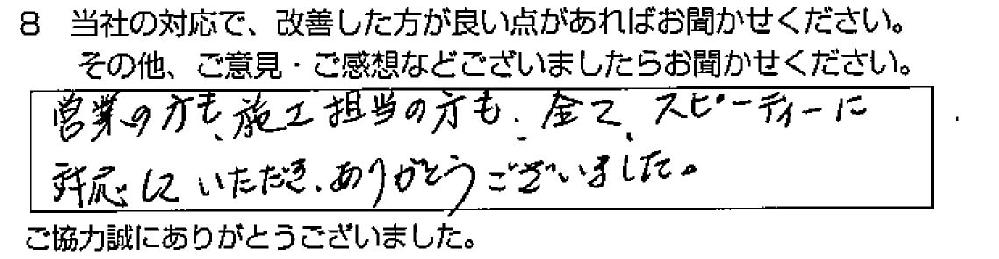 8 当社の対応で、改善した方が良い点があればお聞かせください。
その他、ご意見・ご感想などございましたらお聞かせください。
営業の方も、施工担当の方も、全て、スピーディーに
対応していただき、ありがとうございました。
ご協力誠にありがとうございました。